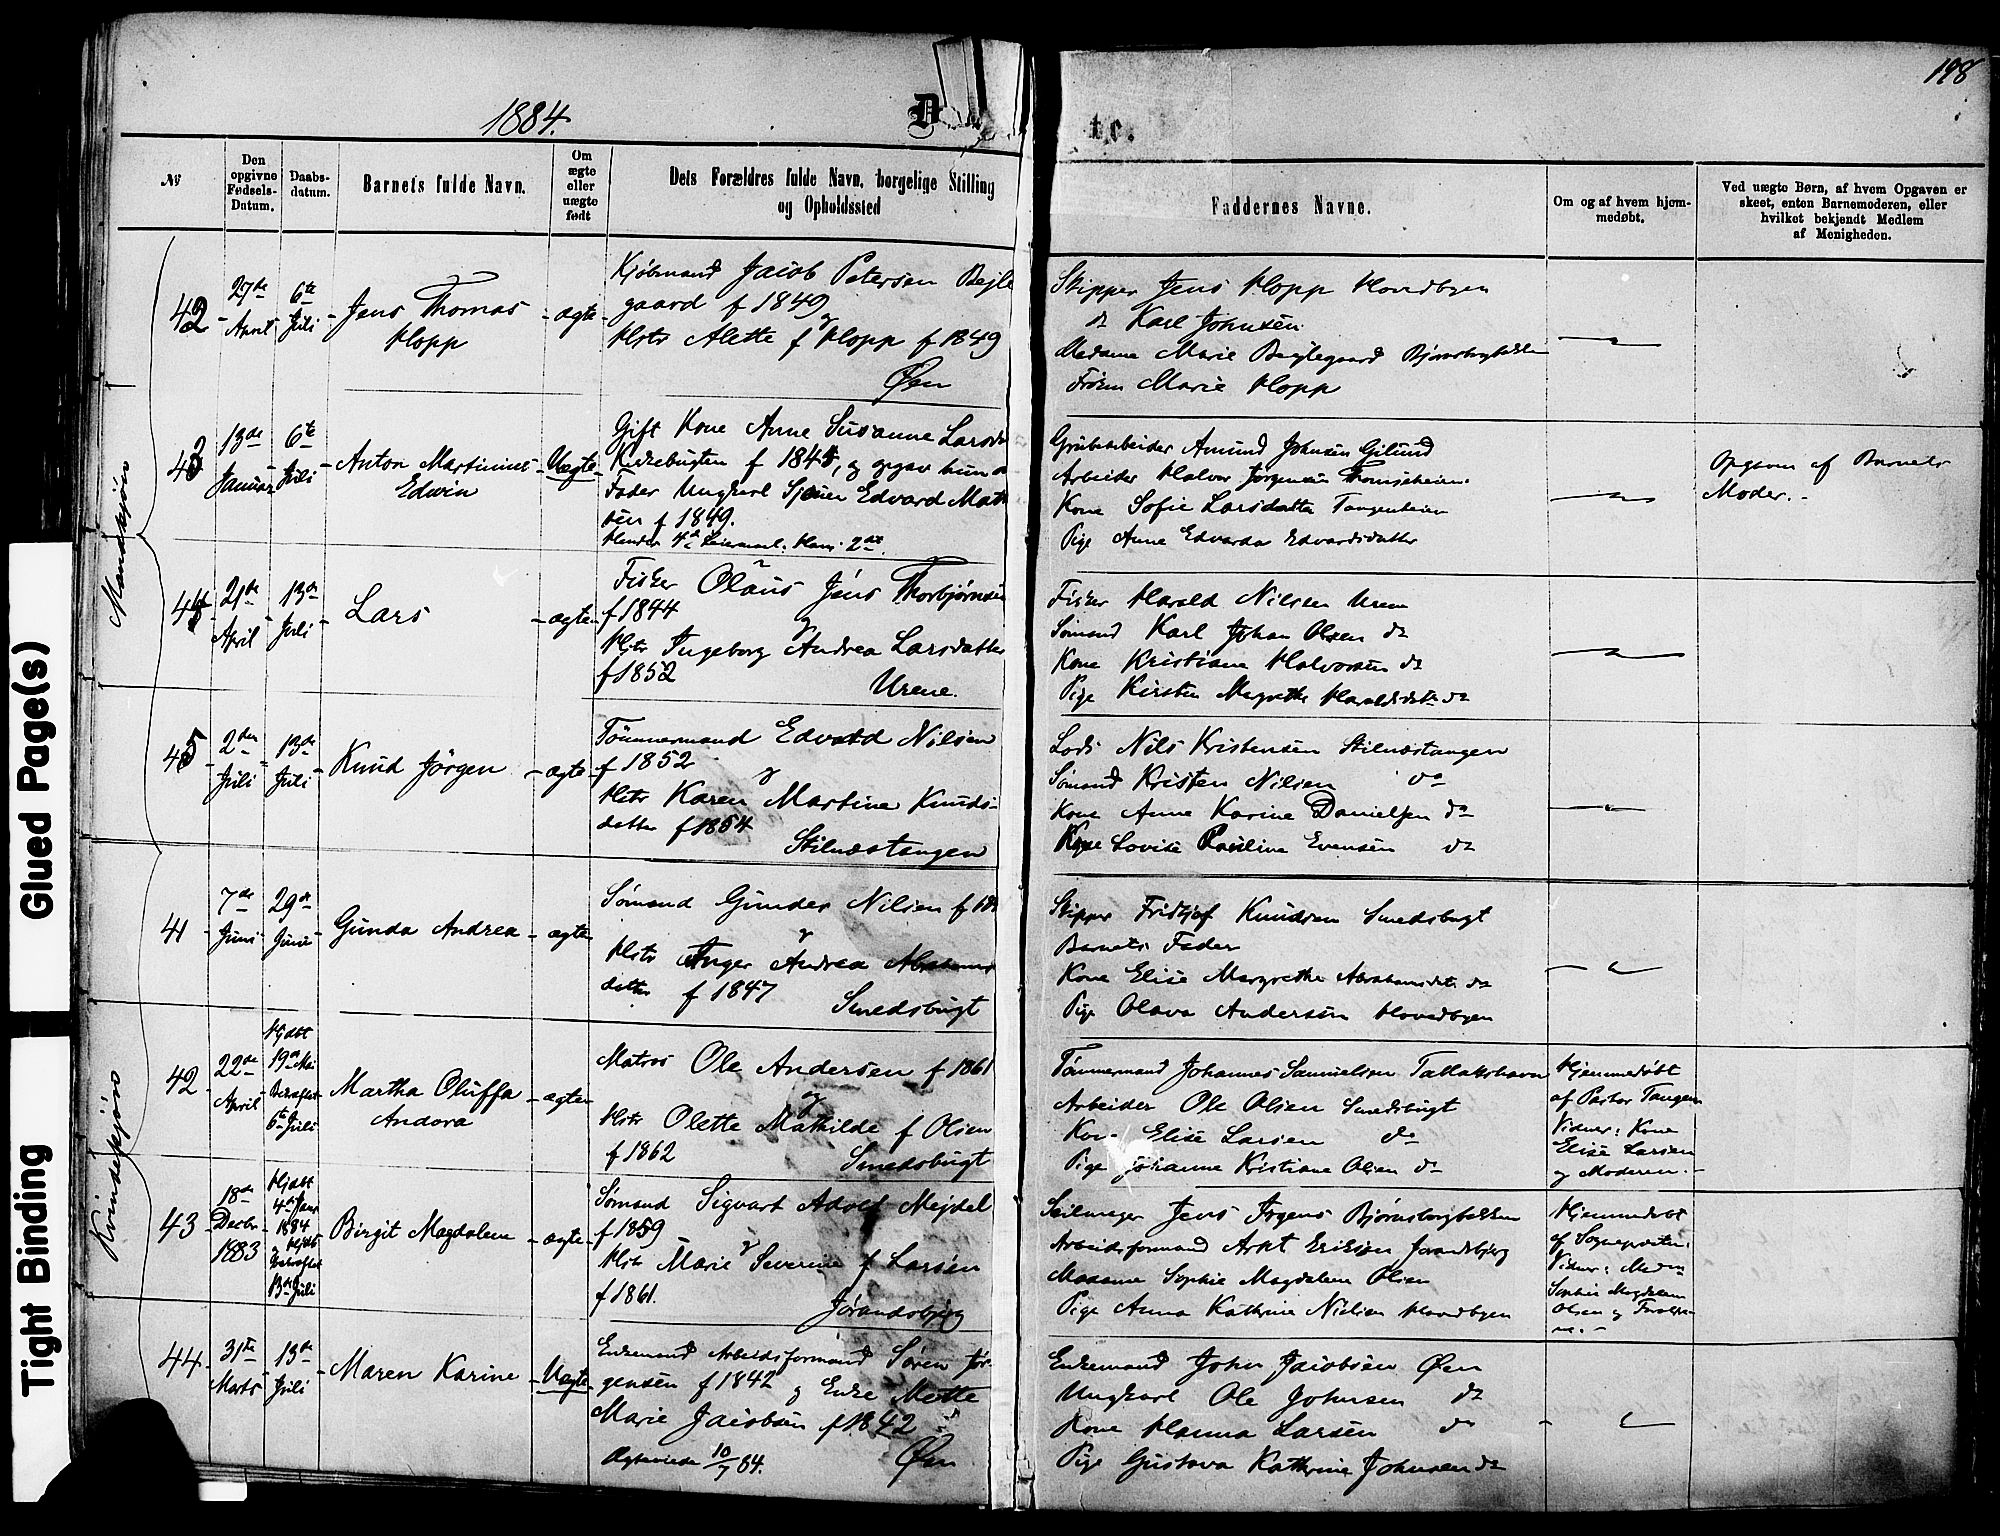 198
1884.
D
te.
№
Den opgivne Fødsels-Datum.
Daabs-datum.
Barnets fulde Navn.
Om ægte eller uægte født
Dets Forældres fulde Navn, borgelige Stilling og Opholdssted
Faddernes Navne.
Om og af hvem hjemmedøbt.
Ved uægte Børn, af hvem Opgaven er skeet, enten Barnemoderen, eller hvilket bekjendt Medlem af Menigheden.
Mandkjøn
42
27de April
6te Juli
Jens Thomas
Klopp
ægte
Kjøbmand Jacob Petersen Bejle
gaard f 1849
og
Hstr Alette f Klopp f 1849
Øen
Skipper Jens Klopp Hovedbyen
do Karl Johnsen
Madame Marie Bejlegaard Bjørnsborgbakken
Frøken Marie Klopp
43
13de Januar
6te Juli
Anton Martinius
Edwin
Uægte
Gift Kone Anne Susanne Larsd
Kirkebugten f 1845, og opgav hun
Fader Ungkarl Sjouer Edvard Mat
sen f 1849.
Hendes 4de Leiermaal. Hans 2det.
Grubearbeider Amund Johnsen Gilund
Arbeider Halvor Jørgensen Thomasheien
Kone Sofie Larsdatter Tangenheien
Pige Anne Edvarda Edvardsdatter
Opgaven af Barnets
Moder.-
44
21de April
13de Juli
Lars
ægte
Fisker Olaus Jens Thorbjørnsen
f 1844
og
Hstr Ingeborg Andrea Larsdatter
f 1852
Urene.
Fisker Harald Nilsen Urene
Sømand Karl Johan Olsen do
Kone Kristiane Halvorsen do
Pige Kirsten Margrethe Haraldsdatr do
45
2den Juli
13de Juli
Knud Jørgen
ægte
Tømmermand Edvard Nilsen
f 1852
og
Hstr Karen Martine Knuds-
datter f 1854
Stilnæstangen
Lods Nils Kristensen Stilnæstangen
Sømand Kristen Nilsen do
Kone Anne Karine Danielsen do
Lovise Pauline Evensen do
Kvindekjøn
41
7de Juni
29de Juni
Gunda Andrea
ægte
Sømand Gunder Nilsen f 18
og
Hstr Inger Andrea Abrahams
datter f 1847
Smedsbugt
Skipper Fridtjof Knudsen Smedsbugt
Barnets Fader
Kone Elise Margrethe Abrahamsdatr do
Pige Olava Andersen Hovedbyen
42
22de April
Hjdøbt 19de Mai
Bekræftet 6te Juli
Martha Oluffa
Andora
ægte
Matros Ole Andersen f 1861
og
Hstr Olette Mathilde f Olsen
f 1862
Smedsbugt
Tømmermand Johannes Samuelsen Tallakshavn
Arbeider Ole Olsen Smedsbugt
Kone Elise Larsen do
Pige Johanne Kristiane Olsen do
Hjemmedøbt
af Pastor Tangen
Vidner: Kone
Elise Larsen
og Moderen.-
43
18de Decbr 1883
Hjdøbt 4de Janr 1884
Bekræftet 13de Juli
Birgit Magdalene
ægte
Sømand Sigvart Adolf Mejdel
f 1859
og
Hstr Marie Severine f Larsen
f 1861.
Jørandsbjerg
Seilmager Jens Jrgens Bjørnsborgbakken
Arbeidsformand Arnt Eriksen Jørandsbjerg
Madame Sophie Magdalene Olsen
Pige Anna Kathrine Nielsen Hovedbyen
Hjemmedøbt
af Sognepresten.
Vidner: Madm
Sophie Magdalene
Olsen og
44
31te Marts
13de Juli
Maren Karine
Uægte
Enkemand Arbeidsformand Søren Jør-
gensen f 1842 og Enke Mette
Marie Jacobsen f 1842
Ægteviede 10/7 84.
Øen
Enkemand John Jacobsen Øen
Ungkarl Ole Johnsen do
Kone Hanna Larsen do
Pige Gustava Kathrine Johnsen do
Glued Page(s)
Tight Binding